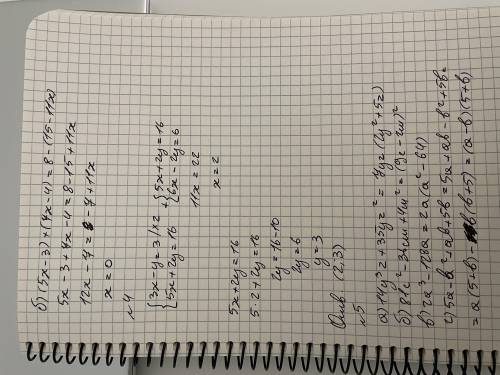 б) (5x-3)+(4x-4)=8-(15-11x)
5x-3+4x-4=8-15+11x
12x-4=-7+11x
x=0
№4
{3x-y=3 /×2 + {5x+2y=16
{5x+2y=16 {6x-2y=6
11x=22
x=2
5x+2y=16
5·2+2y=16
2y=16-10
2y=6
y=3
Отв (2;3)
№5
а) 14y³z+35yz²=7yz(2y²+5z)
б) 81c²-36cm+4m²=(9c-2m)²
в) 2a³-128a=2a(a²-64)
г) 5a-b²+ab+5b=5a+ab-b²+5b=
=a(5+b)-b(b+5)=(a-b)(5+b)